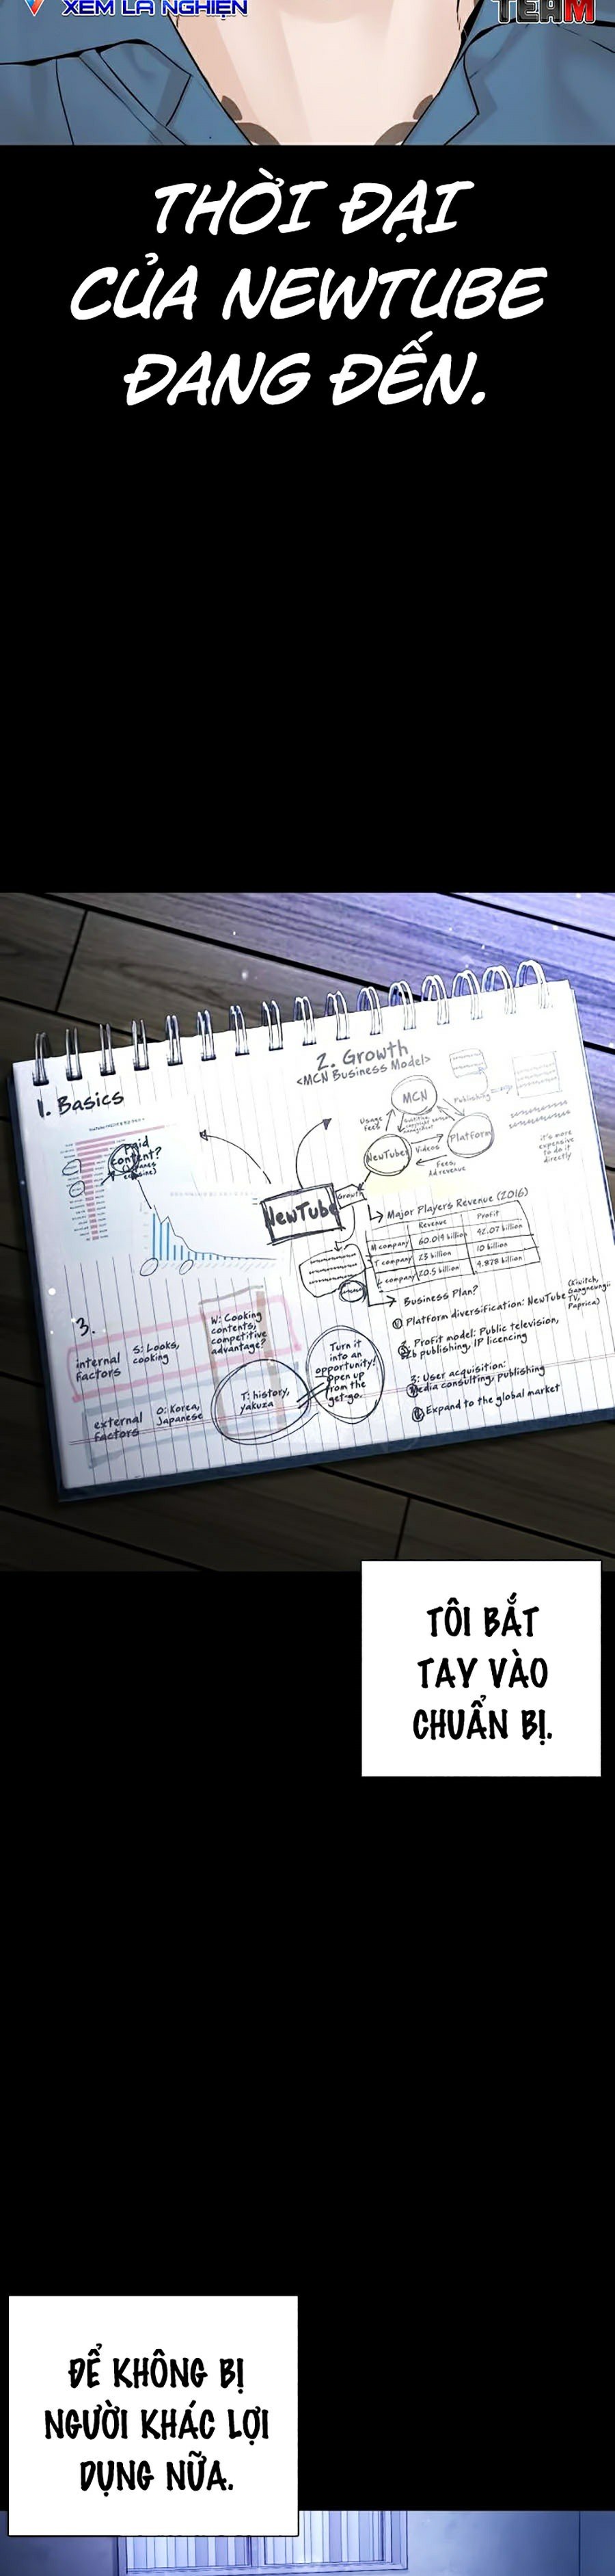 XEM LÀ NGHIỆN
TEAM
THỜI ĐẠI
CỦA NEWTUBE
ĐANG ĐẾN.
1. Basics
Paid
content?
2. Growth
<MCN Business Model>
MCN
Publishing
Usage
Fees
NewTube
Videos
Platform
Fees,
Ad revenue
it's more
expensive
to do it
directly
NewTube
Growth
Major Players Revenue (2016)
Revenue
Profit
M company
60.019 billion
42.07 billion
T company
23 billion
10 billion
L company
20.5 billion
4.878 billion
Business Plan?
① Platform diversification: NewTube
TV,
Paprica)
Profit model: Public television,
publishing, IP licencing
3: User acquisition:
Media consulting, publishing
Expand to the global market
3.
internal
factors
S: Looks,
cooking
W: Cooking
contents,
competitive
advantage?
external
factors
O: Korea,
Japanese
T: history,
yakuza
Turn it
into an
opportunity!
open up
from the
get-go.
TÔI BẮT
TAY VÀO
CHUẨN BỊ.
ĐỂ KHÔNG BỊ
NGƯỜI KHÁC LỢI
DỤNG NỮA.